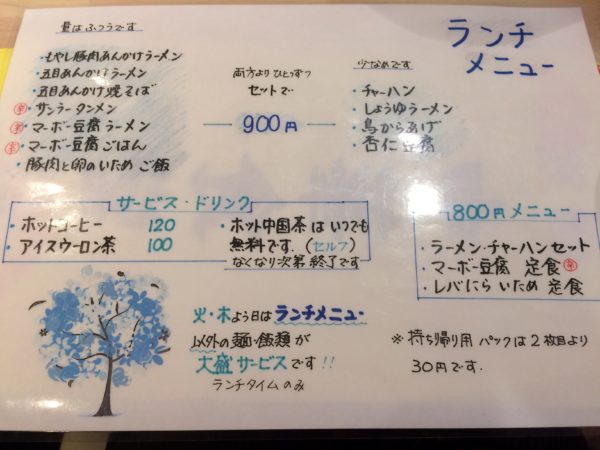 ランチ
メニュー
量はふつうです
・もやし豚肉あんかけラーメン
・五目あんかけラーメン
・五目あんかけ焼そば
辛・サンラータンメン
辛・マーボー豆腐ラーメン
辛・マーボー豆腐ごはん
・豚肉と卵のいためご飯
両方よりひとつずつ
セットで
900円
少なめです
・チャーハン
・しょうゆラーメン
・鳥からあげ
・杏仁豆腐
サービス・ドリンク
・ホットコーヒー 120
・アイスウーロン茶 100
・ホット中国茶はいつでも
無料です。(セルフ)
なくなり次第終了です
800円メニュー
・ラーメン・チャーハンセット
・マーボー豆腐 定食 辛
・レバにらいため 定食
火・木よう日はランチメニュー
以外の麺・飯類が
大盛サービスです!!
ランチタイムのみ
※持ち帰り用パックは2枚目より
30円です.